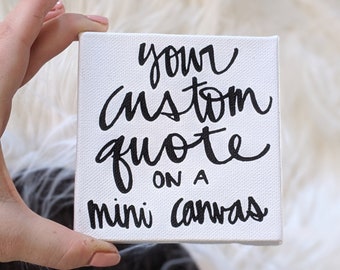 your
custom
quote
ON A
mini canvas